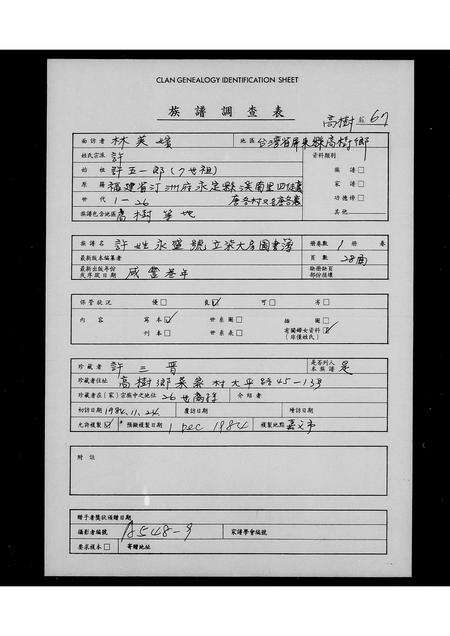 CLAN GENEALOGY IDENTIFICATION SHEET
族譜調查表
高樹 67
面訪者 林美 地區 台灣省屏東縣高樹鄉
姓氏宗派 許 資料類別
始祖 許五一郎(7世祖) 族譜□
原籍 福建省汀洲府永定縣溪南里四 家譜□
世代 1-26 功德榜□
族譜包含地區 高樹等地 其他
族譜名 許姓永盛號立 大房鬮書簿 冊卷數 1 冊 卷
最新版本編纂者 頁數 28面
最新出版年份或序跋日期 咸豐叁年 缺冊缺頁部份括填
保管狀況 優□ 良☑ 可□ 劣□
內容 寫本☑ 世系圖□ 插圖□
刊本□ 世系表□ 有關婦女資料☑(非僅姓氏)
珍藏者 許三晋 是否列入本族譜 是
珍藏者住址 高樹鄉 村太平路45-13号
珍藏者在(家)宗族中之地位 26世裔孫 介紹者
初訪日 1984.11.24 覆訪日期 增訪日期
允許複製☑ *預擬複製日期 1 Dec 1984 複製地點 嘉义市
附註
贈予者獎狀頒贈日期
攝影者編號 A548-9 家譜學會編號
要求複本□ 寄贈地址